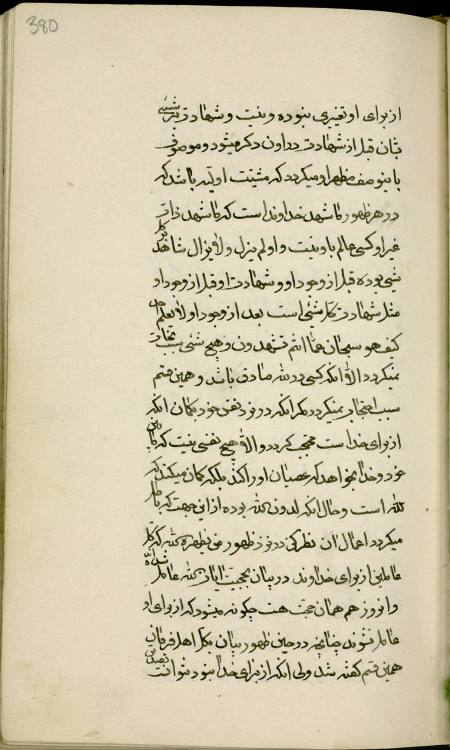 380
از برای او تغیری نبوده و نیست و شهادت بر شیئی
بآن قبل از شهادت در اون ذکر میشود و موصوف
باینوصف مظهر او میگردد که مشیت اولیه باشد که
در هر ظهور ما شهد خداوند است که ما شهد ذات
غیر او کسی عالم باو نیست و او لم یزل و لا یزال شاهد کل
شیئ بوده قبل از وجود او و شهادت او قبل از وجود او
مثل شهادت کل شیئ است بعد از وجود او لا یعلم
کیف هو سبحان عما انتم تشهدون و هیچ شیئ سبب نجات
نمیگردد الا آنکه کسی در لله صادق باشد و همین قسم
سبب احتجاب نمیگردد مگر آنکه در نزد نفس خود گمان آنکه
از برای خدا است محتجب گردد و الا هیچ نفسی نیست که
خود و خدا بخواهد که عصیان او را کند بلکه گمان میکند که
لله است و حال آنکه لدون لله بوده از این جهت که کل
میگردد اعمال آن نظر کن در نزد ظهور من یظهره الله که کل
عاملین از برای خداوند در بیان بحجیت آیات الله عامل
و آنروز هم همان حجت هست چگونه میشود که از برای او
عامل نشوند چنانچه در حین ظهور بیان مگر اهل فرقان
همین قسم گفته شد ولی آنکه از برای خدا نبود نتوانست